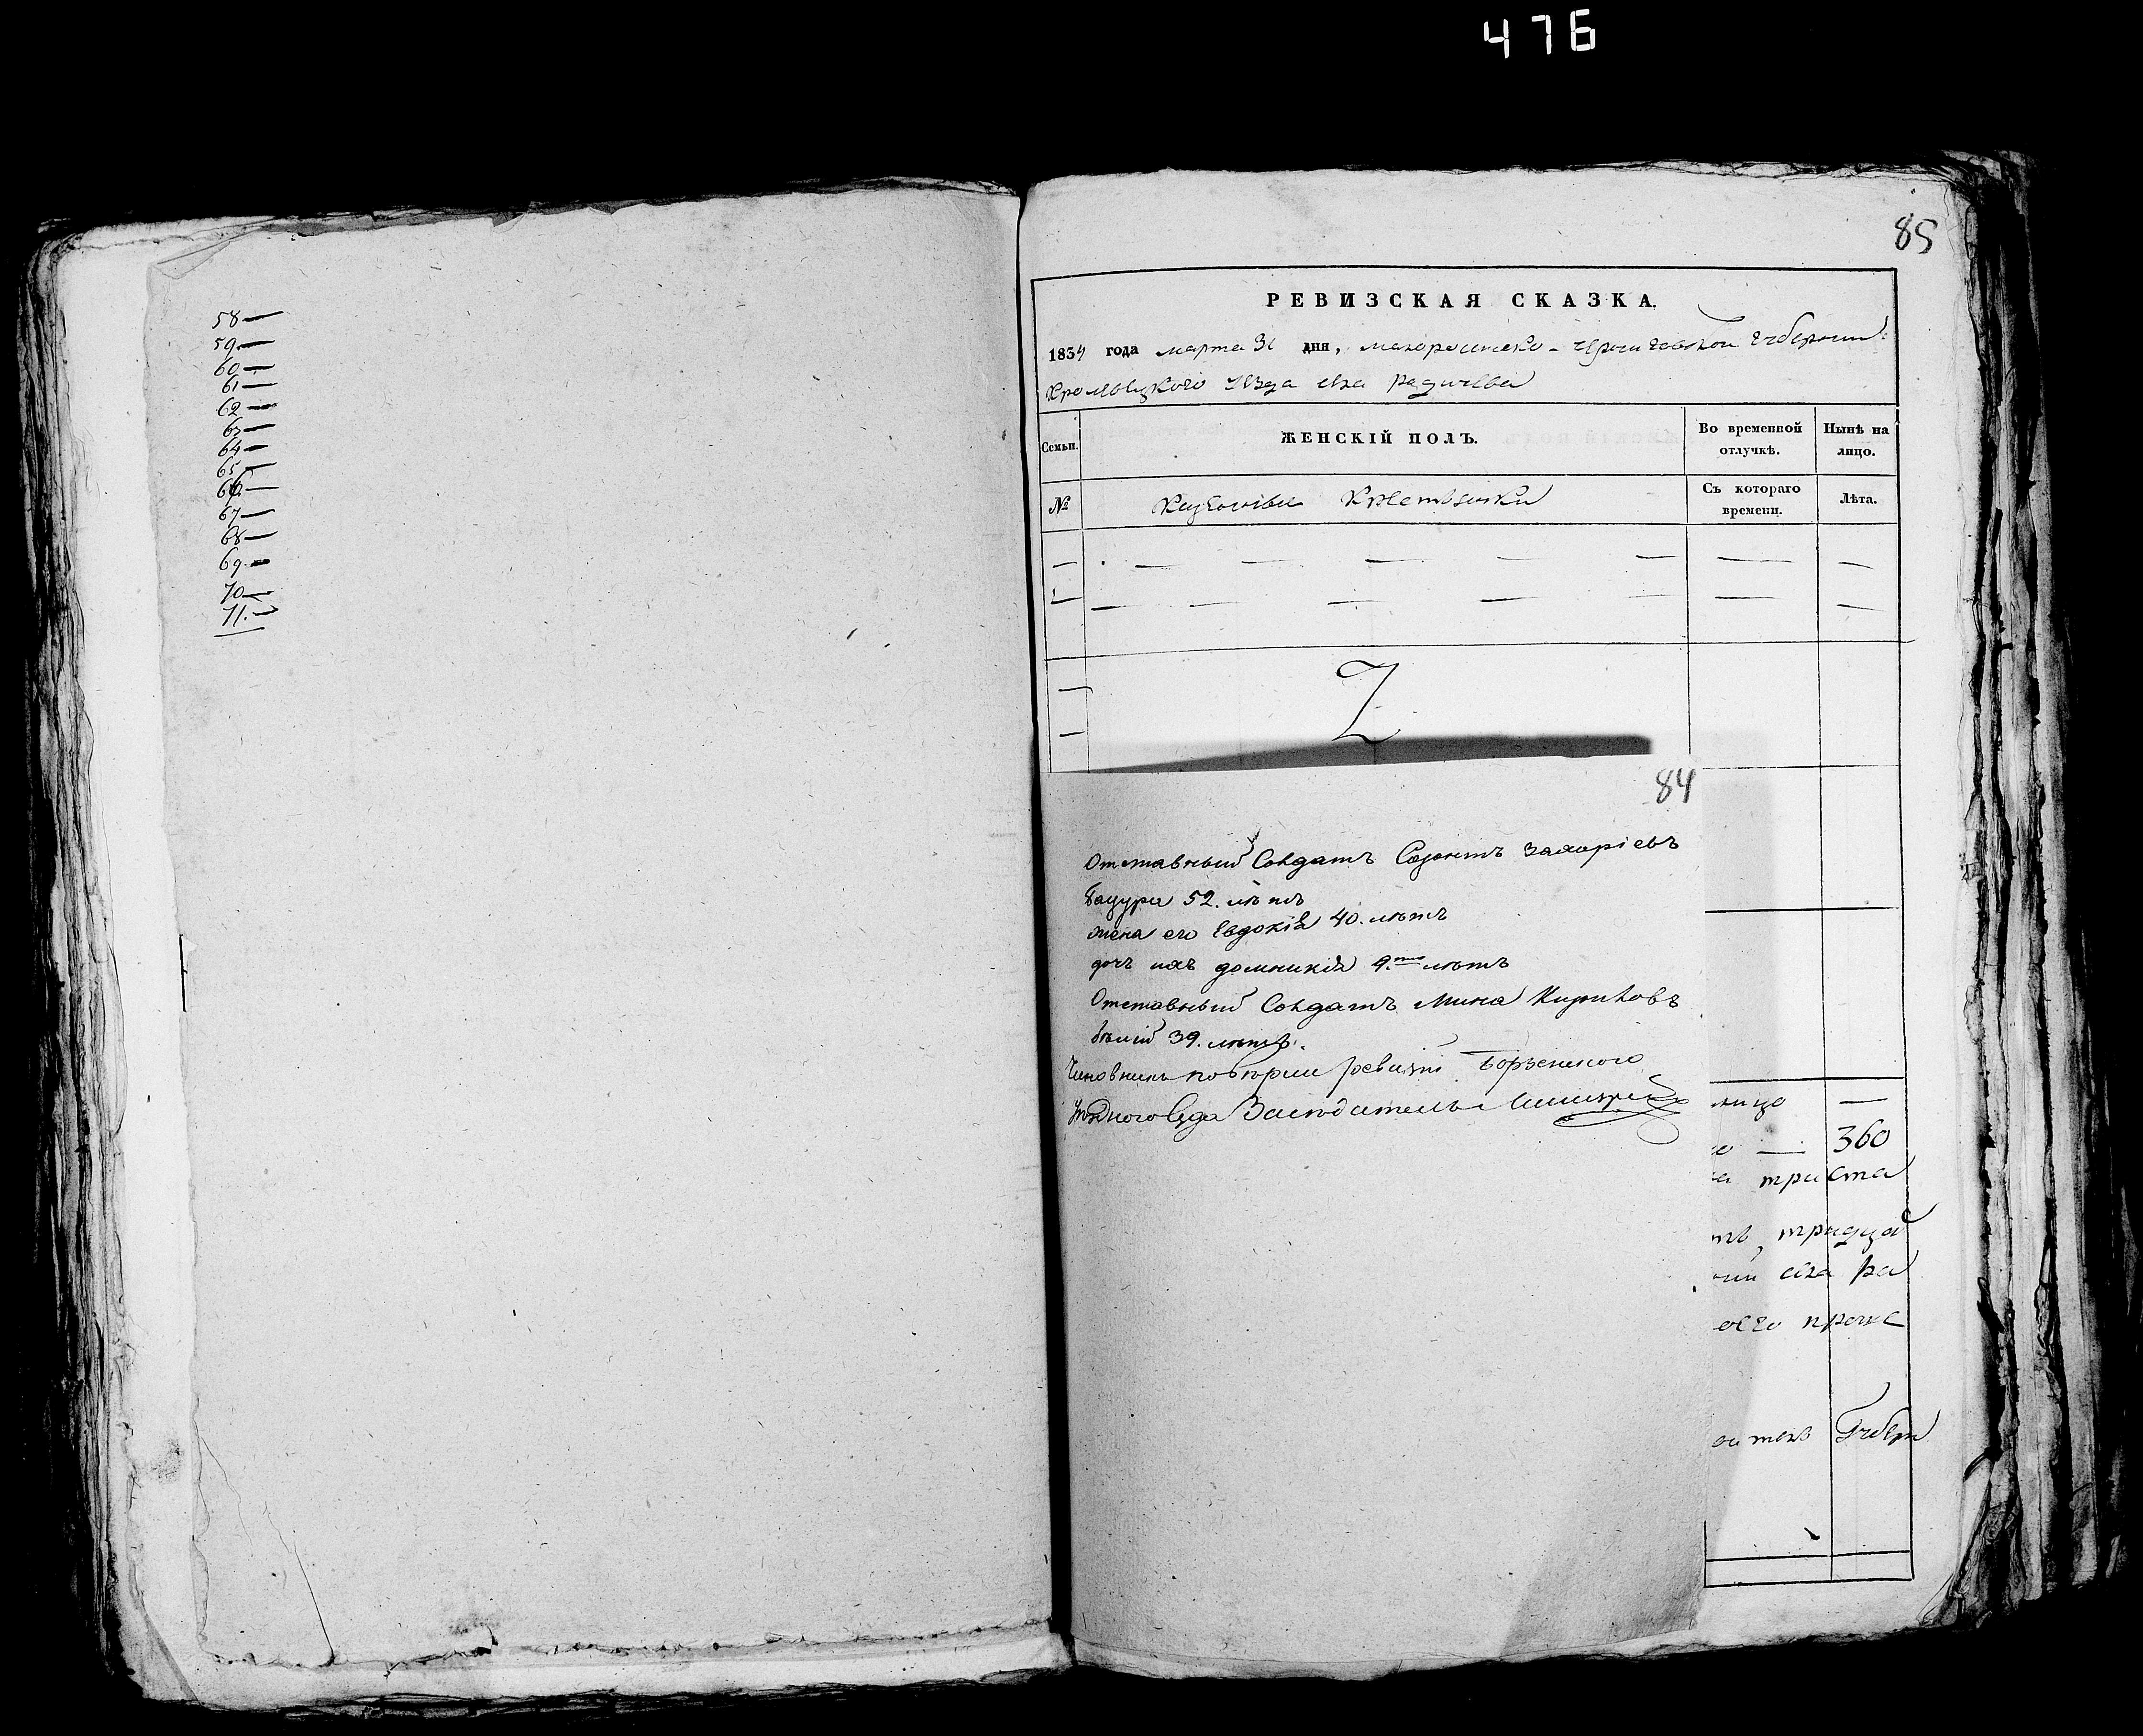 476
58 —
59 —
60 —
61 —
62 —
63 —
64 —
65 —
66 —
67 —
68 —
69 —
70 —
71. —
85
РЕВИЗСКАЯ СКАЗКА.
1834 года марта 31 дня, Малороссійско-Черниговской губерніи
Кролевецкого уезда села Радичева
Семьи.
ЖЕНСКІЙ ПОЛЪ.
Во временной отлучкѣ.
Нынѣ на лицо.
№
Съ котораго времени.
Лѣта.
84
Отставный Солдатъ Созонтъ Захоріевъ
Бацура 52. лѣтъ
жена его Евдокія 40. лѣтъ
дочь ихъ Домникія 9. лѣтъ
Отставный Солдатъ Мина Кириловъ
Белій 39. лѣтъ.
Чиновникъ поверки ревизіи Борзенского
Уездного Суда Заседатель
лицо —
— 360
триста
тридца
села Ра
Губер